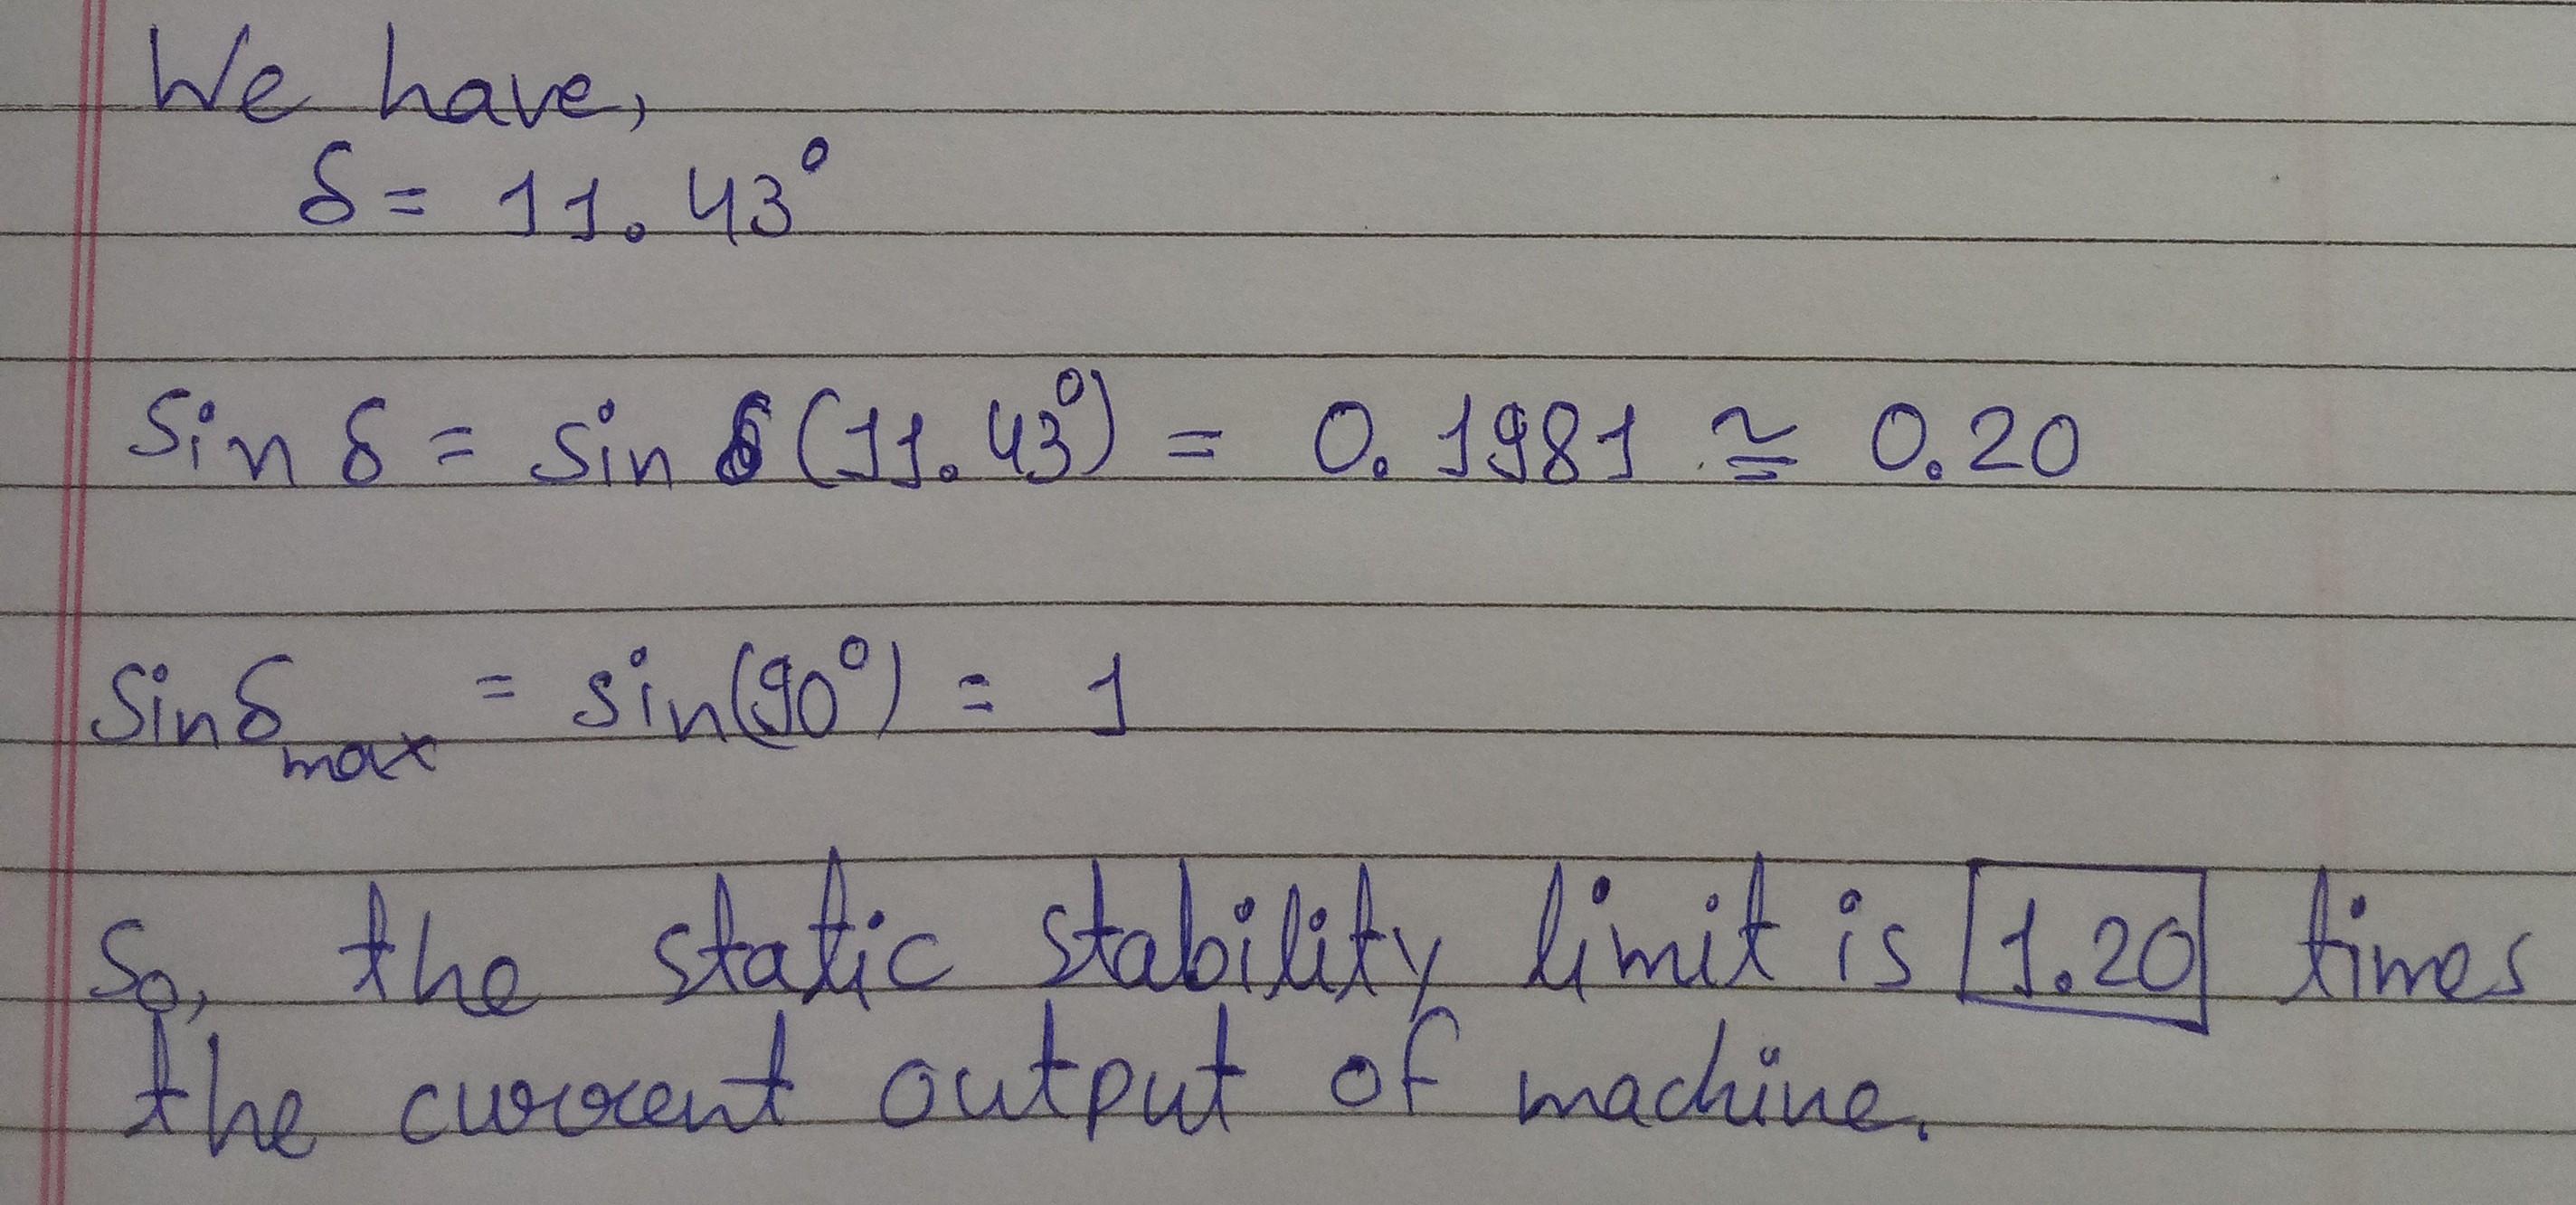 We have,
δ = 11.43°
Sin δ = sin δ (11.43°) = 0.1981 ≅ 0.20
Sin δmax = sin(90°) = 1
So, the static stability limit is 1.20 times
the current output of machine.